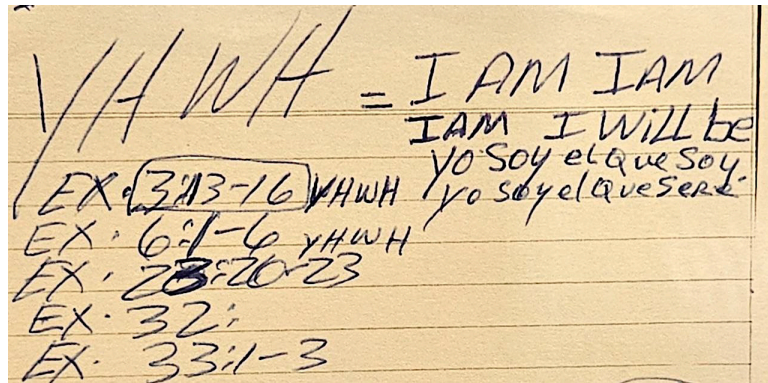 YHWH = I AM IAM
IAM I Will be
yo soy el que soy.
yo soy el que seré
EX. 3:13-16 YHWH
EX. 6:1-6 YHWH
EX. 23:20-23
EX. 32:
EX. 33:1-3